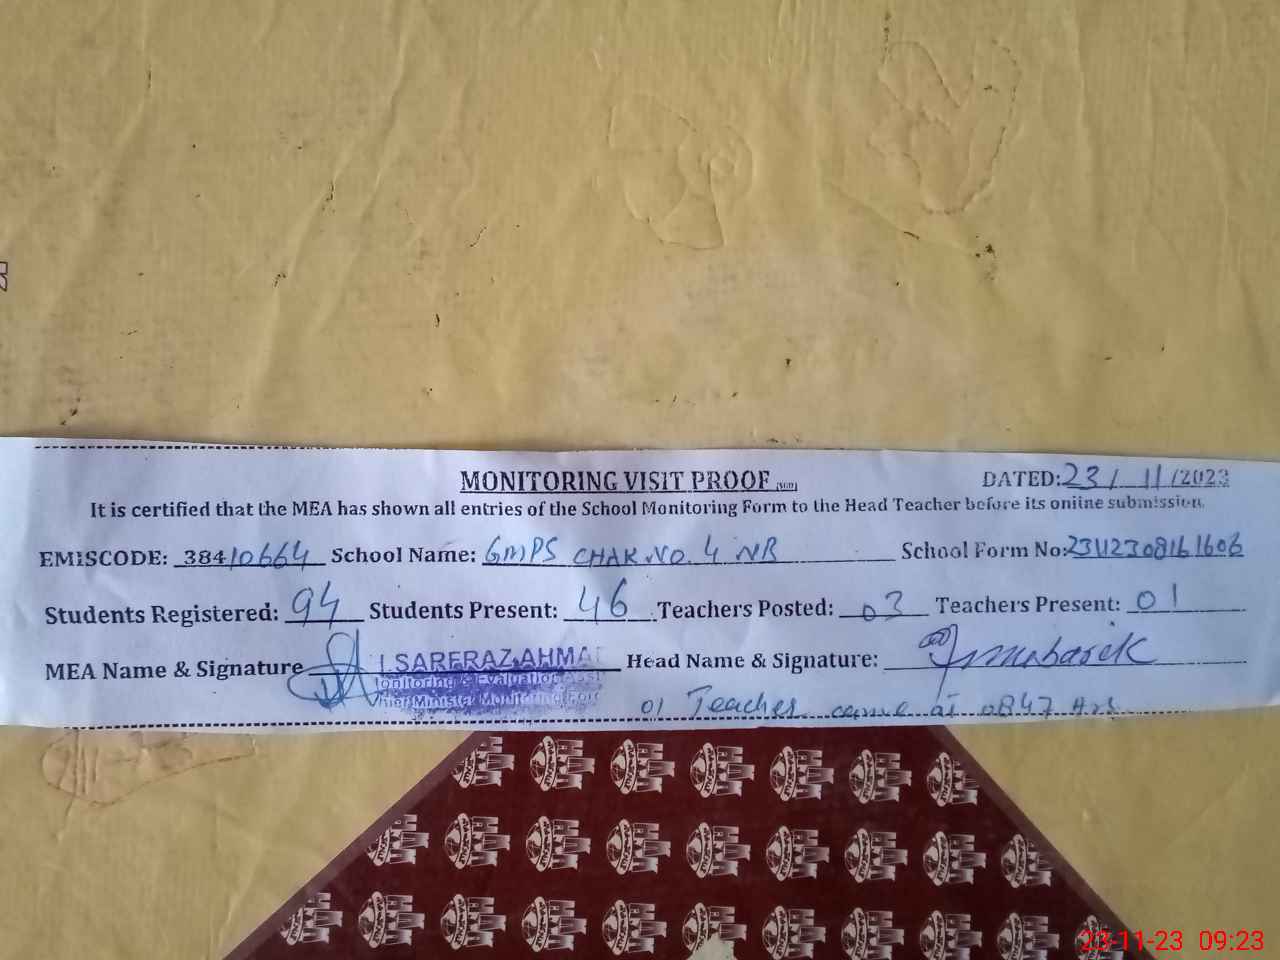 MONITORING VISIT PROOF
DATED: 23/11/2023
It is certified that the MEA has shown all entries of the School Monitoring Form to the Head Teacher before its online submission.
EMISCODE: 38410664 School Name: GMPS CHAK NO. 4 NB School Form No:
Students Registered: 94 Students Present: 46 Teachers Posted: 03 Teachers Present: 01
MEA Name & Signature SARFRAZ AHMA Head Name & Signature: Mubarak
onitoring & Evaluation Assi
hief Minister Monitoring For
01 Teacher came at 0847 Hrs
23-11-23 09:23